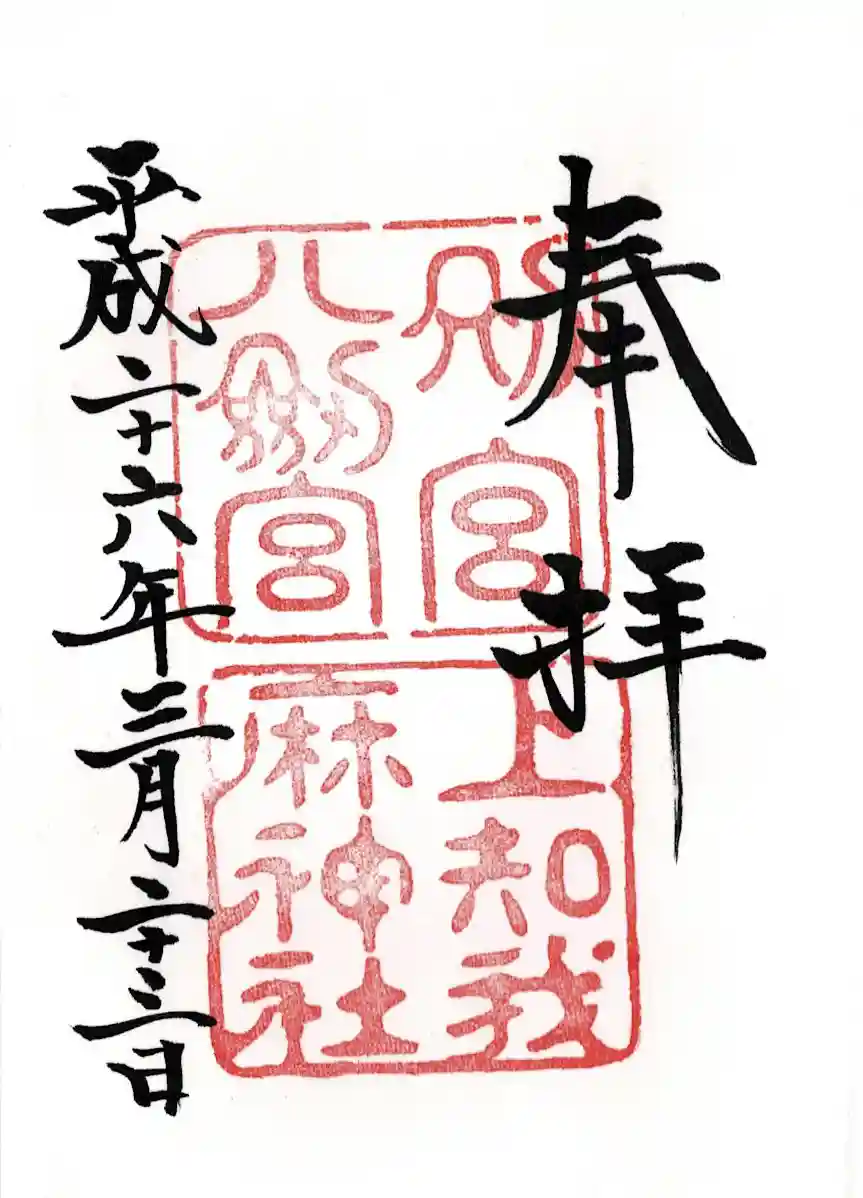 奉拝
別宮
八剱宮
上知我
麻神社
平成二十六年三月二十三日